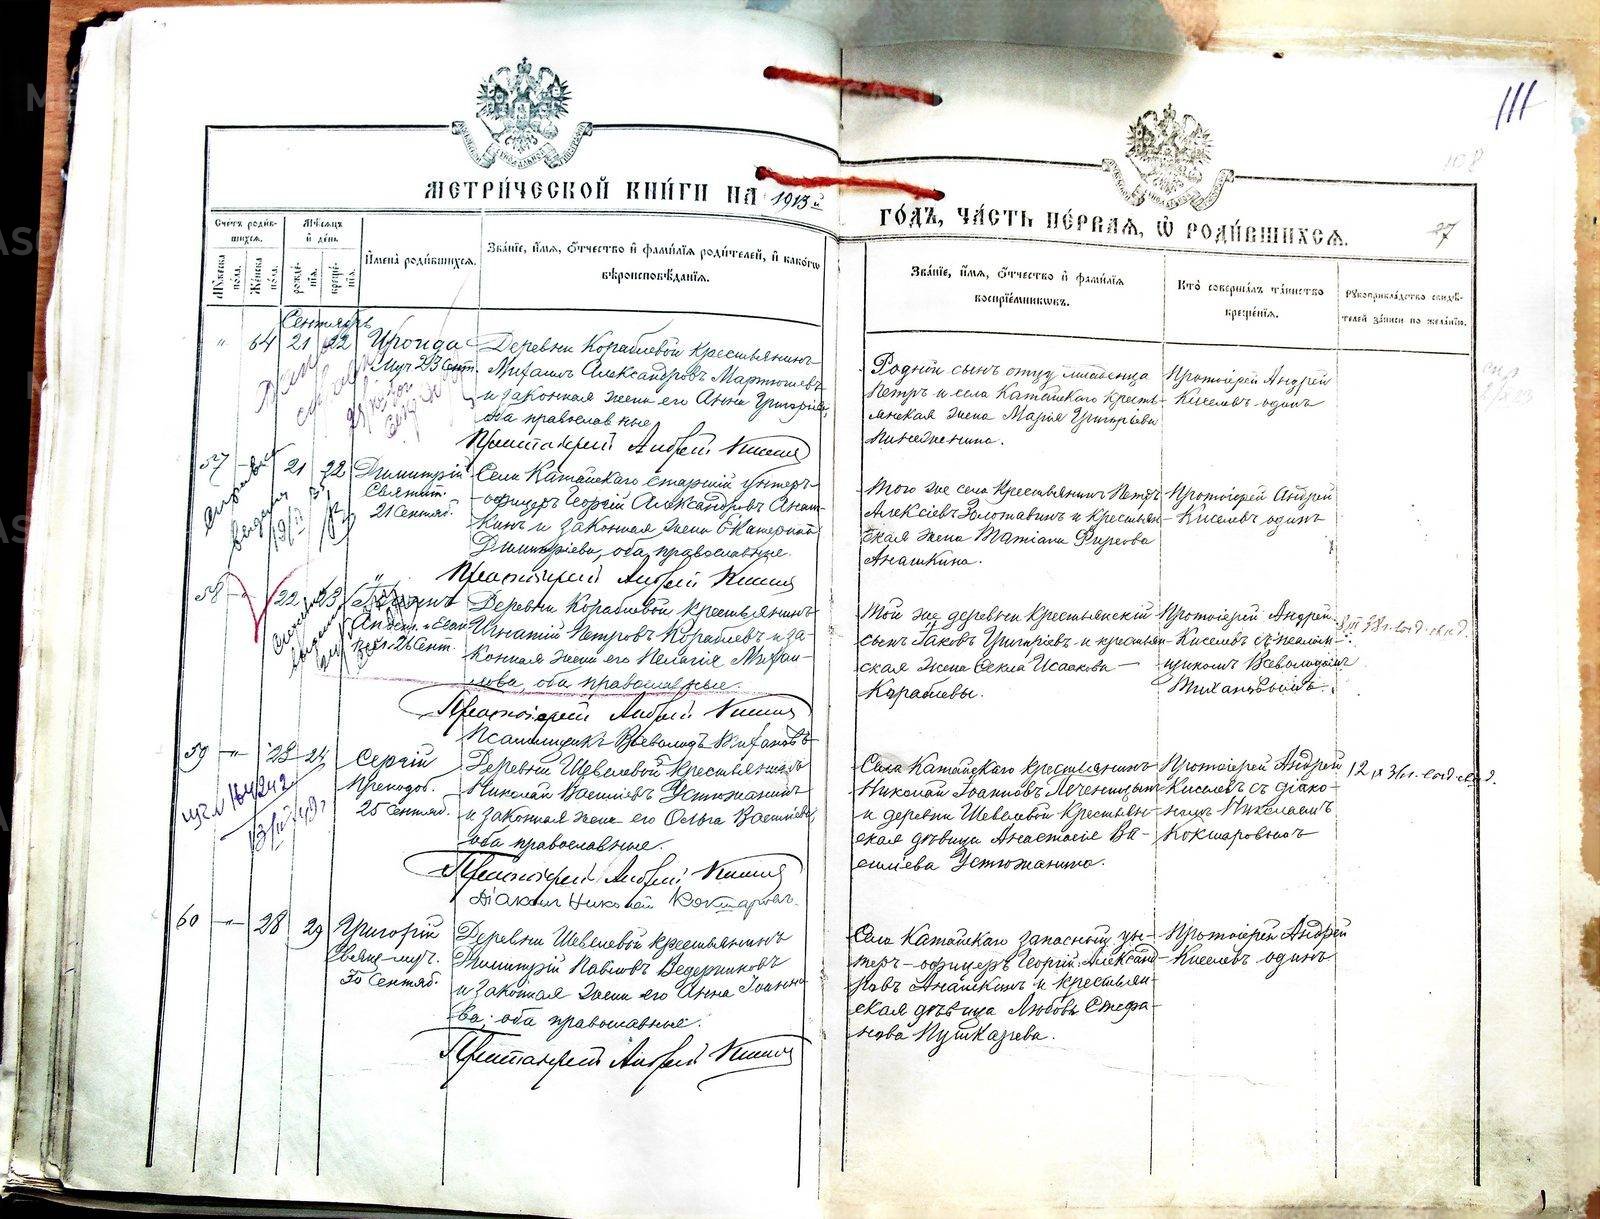 111
МЕТРИ́ЧЕСКОЙ КНИ́ГИ НА 1913й
ГО́ДЪ, ЧА́СТЬ ПЕ́РВАЯ, Ѡ РОДИ́ВШИХСЯ.
Сче́тъ роди́в-
шихся.
Мѣ́сяцъ
и де́нь.
Мꙋ́жеска
по́ла.
Же́нска
по́ла.
рожде́-
нія.
креще́-
нія.
Имена̀ роди́вшихся.
Зва́ніе, и́мя, ѻ́тчество и фами́лія роди́телей, и како́гѡ
вѣроисповѣ́данія.
Зва́ніе, и́мя, ѻ́тчество и фами́лія
воспрїе́мникѡвъ.
Кто̀ соверша́лъ та́инство
креще́нія.
Рꙋкоприкла́дство свидѣ́-
телей за́писи по жела́нію.
Сентябрь
64 21 22 Ираида
муч 23 Сент.
Деревни Кораблевой крестьянинъ
Михаилъ Александровъ Мартюшевъ
и законная жена его Анна Григорiе-
ва православные.
Протоiерей Андрей Киселевъ
Родной сынъ отцу младенца
Петръ и села Катайскаго кресть-
янская жена Марiя Григорiева
Протоiерей Андрей
Киселевъ одинъ
57 21 22 Димитрiй
Святит.
21 Сентяб.
Села Катайскаго старшiй унтеръ-
офицеръ Георгiй Александровъ Анаш-
кинъ и законная жена Екатерина
Димитрiева, оба православные.
Протоiерей Андрей Киселевъ
Того же села крестьянинъ Петръ
Алексiевъ Золотавинъ и крестьян-
ская жена Татiана Фирсова
Анашкина.
Протоiерей Андрей
Киселевъ одинъ
58 22 23
26 Сент.
Деревни Кораблевой крестьянинъ
Игнатiй Петровъ Кораблевъ и за-
конная жена его Пелагiя Михаи-
лова, оба православные.
Протоiерей Андрей Киселевъ
Псаломщикъ Всеволодъ Тихановъ
Той же деревни крестьянскiй
сынъ Iаковъ Григорiевъ и крестьян-
ская жена Фекла Исаакова
Кораблевы.
Протоiерей Андрей
Киселевъ съ псалом-
щикомъ Всеволодомъ
Тихановымъ.
59 23 24 Сергiй
Преподоб.
25 Сентяб.
Деревни Шевелевой крестьянинъ
Николай Васильевъ Устюжанинъ
и законная жена его Ольга Васильева,
оба православные.
Протоiерей Андрей Киселевъ
Дiаконъ Николай Кокшаровъ.
Села Катайскаго крестьянинъ
Николай Iоанновъ Печеницынъ
и деревни Шевелевой крестьян-
ская дѣвица Анастасiя Ва-
сильева Устюжанина.
Протоiерей Андрей
Киселевъ съ дiако-
номъ Николаемъ
Кокшаровымъ
60 28 29 Григорiй
Свящ-муч.
30 Сентяб.
Деревни Шевелевой крестьянинъ
Димитрiй Павловъ Ведерниковъ
и законная жена его Анна Iоанно-
ва, оба православные.
Протоiерей Андрей Киселевъ
Села Катайскаго запасный ун-
теръ-офицеръ Георгiй Александ-
ровъ Анашкинъ и крестьян-
ская дѣвица Любовь Стефа-
нова Пушкарева.
Протоiерей Андрей
Киселевъ одинъ